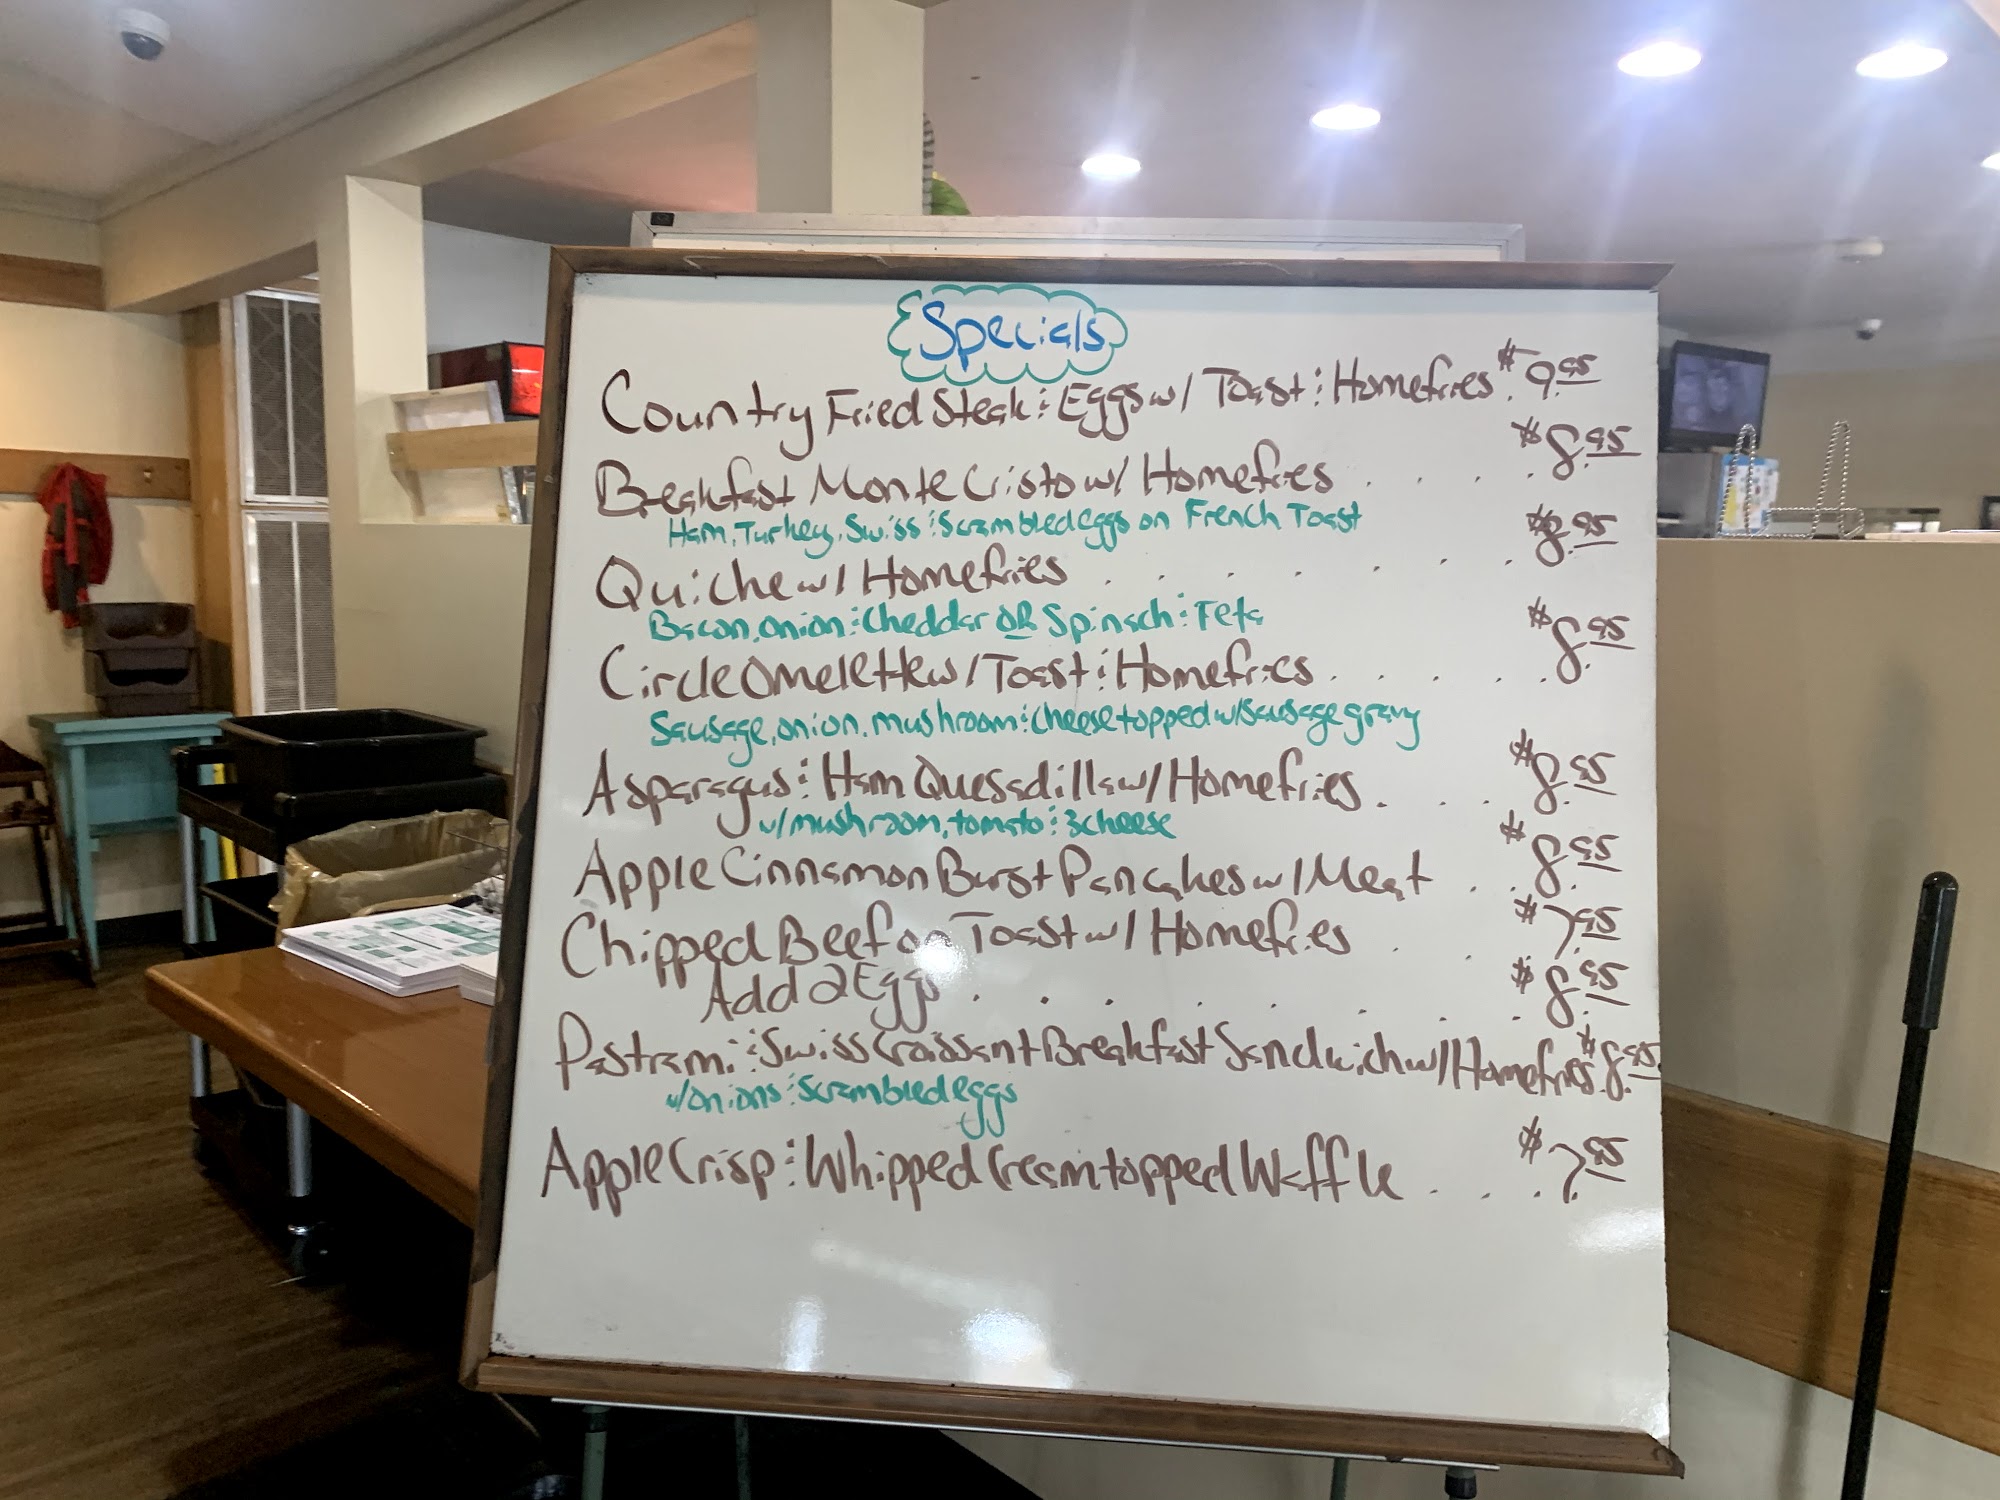 Specials
Country Fried Steak & Eggs w/ Toast & Homefries $9.95
Breakfast Monte Cristo w/ Homefries . . . . $8.95
Ham, Turkey, Swiss & Scrambled eggs on French Toast
Quiche w/ Homefries . . . . . . . $8.95
Bacon, onion & Cheddar OR Spinach & Feta
Circle Omelette w/ Toast & Homefries . . . . . $8.95
Sausage, onion, mushroom & cheese topped w/ sausage gravy
Asparagus & Ham Quesadilla w/ Homefries . . . . $8.95
w/ mushroom, tomato & 3 cheese
Apple Cinnamon Burst Pancakes w/ Meat . . . $8.95
Chipped Beef on Toast w/ Homefries . . . $7.95
Add 2 Eggs . . . . . . . . $8.95
Pastrami & Swiss Croissant Breakfast Sandwich w/ Homefries $8.95
w/ onions & Scrambled eggs
Apple Crisp & Whipped Cream topped Waffle . . . . $7.95